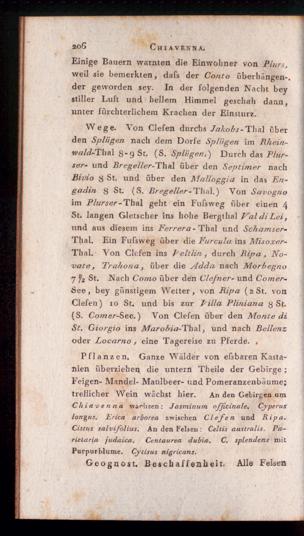 206 CHIAVENNA.
Einige Bauern warnten die Einwohner von Plurs,
weil sie bemerkten, daſs der Conto überhängen-
der geworden sey. In der folgenden Nacht bey
stiller Luft und hellem Himmel geschah dann,
unter fürchterlichem Krachen der Einsturz.
Wege. Von Clefen durchs Jakobs-Thal über
den Splügen nach dem Dorfe Splügen im Rhein-
wald-Thal 8-9 St. (S. Splügen.) Durch das Plur-
ser- und Bregeller-Thal über den Septimer nach
Bivio 8 St. und über den Malloggia in das En-
gadin 8 St. (S. Bregeller-Thal.) Von Savogno
im Plurser-Thal geht ein Fuſsweg über einen 4
St. langen Gletscher ins hohe Bergthal Val di Lei,
und aus diesem ins Ferrera- Thal und Schamser-
Thal. Ein Fuſsweg über die Furcula ins Misoxer-
Thal. Von Clefen ins Veltlin, durch Ripa, No-
vate, Trahona, über die Adda nach Morbegno
7 St. Nach Como über den Clefner- und Comer-
See, bey günstigem Wetter, von Ripa (2 St. von
Clefen) 10 St. und bis zur Villa Pliniana 8 St.
(S. Comer-See.) Von Clefen über den Monte di
St. Giorgio ins Marobia-Thal, und nach Bellenz
oder Locarno, eine Tagereise zu Pferde.
Pflanzen. Ganze Wälder von eſsbaren Kasta-
nien überziehen die untern Theile der Gebirge;
Feigen- Mandel- Maulbeer- und Pomeranzenbäume;
treflicher Wein wächst hier. An den Gebirgen um
Chiavenna wachsen: Jasminum officinale. Cyperus
longus. Erica arborea zwischen Clefen und Ripa.
Cistus salvifolius. An den Felsen: Celtis australis. Pa-
rietaria judaica. Centaurea dubia. C. splendens mit
Purpurblume. Cytisus nigricans.
Geognost. Beschaffenheit. Alle Felsen